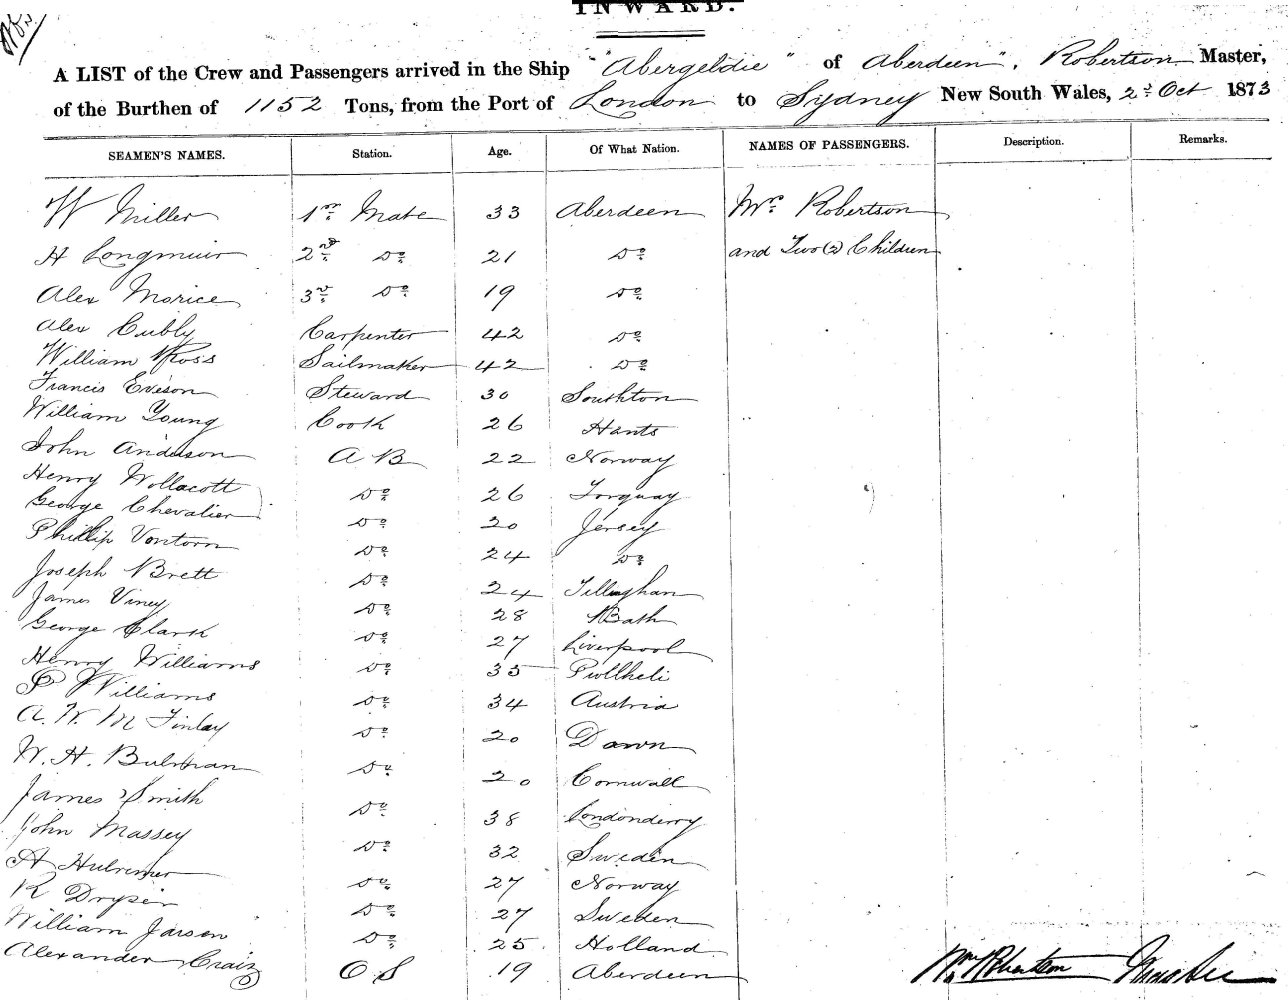 INWARD.
A LIST of the Crew and Passengers arrived in the Ship "Abergeldie" of Aberdeen", Robertson Master,
of the Burthen of 1152 Tons, from the Port of London to Sydney New South Wales, 2d Oct 1873
SEAMEN'S NAMES. Station. Age. Of What Nation. NAMES OF PASSENGERS. Description. Remarks.
W Miller 1st Mate 33 Aberdeen Mrs Robertson
H Longmuir 2nd Do 21 Do and Two (2) Children
Alex Morice 3rd Do 19 Do
Alex Cubly Carpenter 42 Do
William Ross Sailmaker 42 Do
Francis Eveson Steward 30 Southton
William Young Cook 26 Hants
John Anderson A B 22 Norway
Henry Wollacott Do 26 Torquay
George Chevalier Do 20 Jersey
Phillip Vontorn Do 24 Do
Joseph Brett Do 24 Tillingham
James Viney Do 28 Bath
George Clark Do 27 Liverpool
Henry Williams Do 35 Pwllheli
P Williams Do 34 Austria
A. W. M Finlay Do 20 Down
W. H. Bulman Do 20 Cornwall
James Smith Do 38 Londonderry
John Massey Do 32 Sweden
A Do 27 Norway
R Do 27 Sweden
William Jarsen Do 25 Holland
Alexander Craig O S 19 Aberdeen
Wm Robertson Master